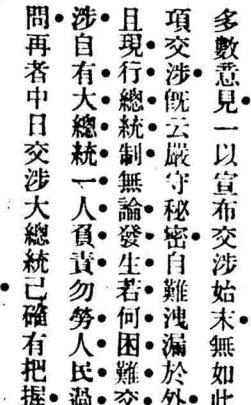 多數意見一以宣布交涉始末無如此
項交涉旣云嚴守秘密自難洩漏於外
且現行總統制無論發生若何困難交
涉自有大總統一人負責勿勞人民過
問再者中日交涉大總統已確有把握